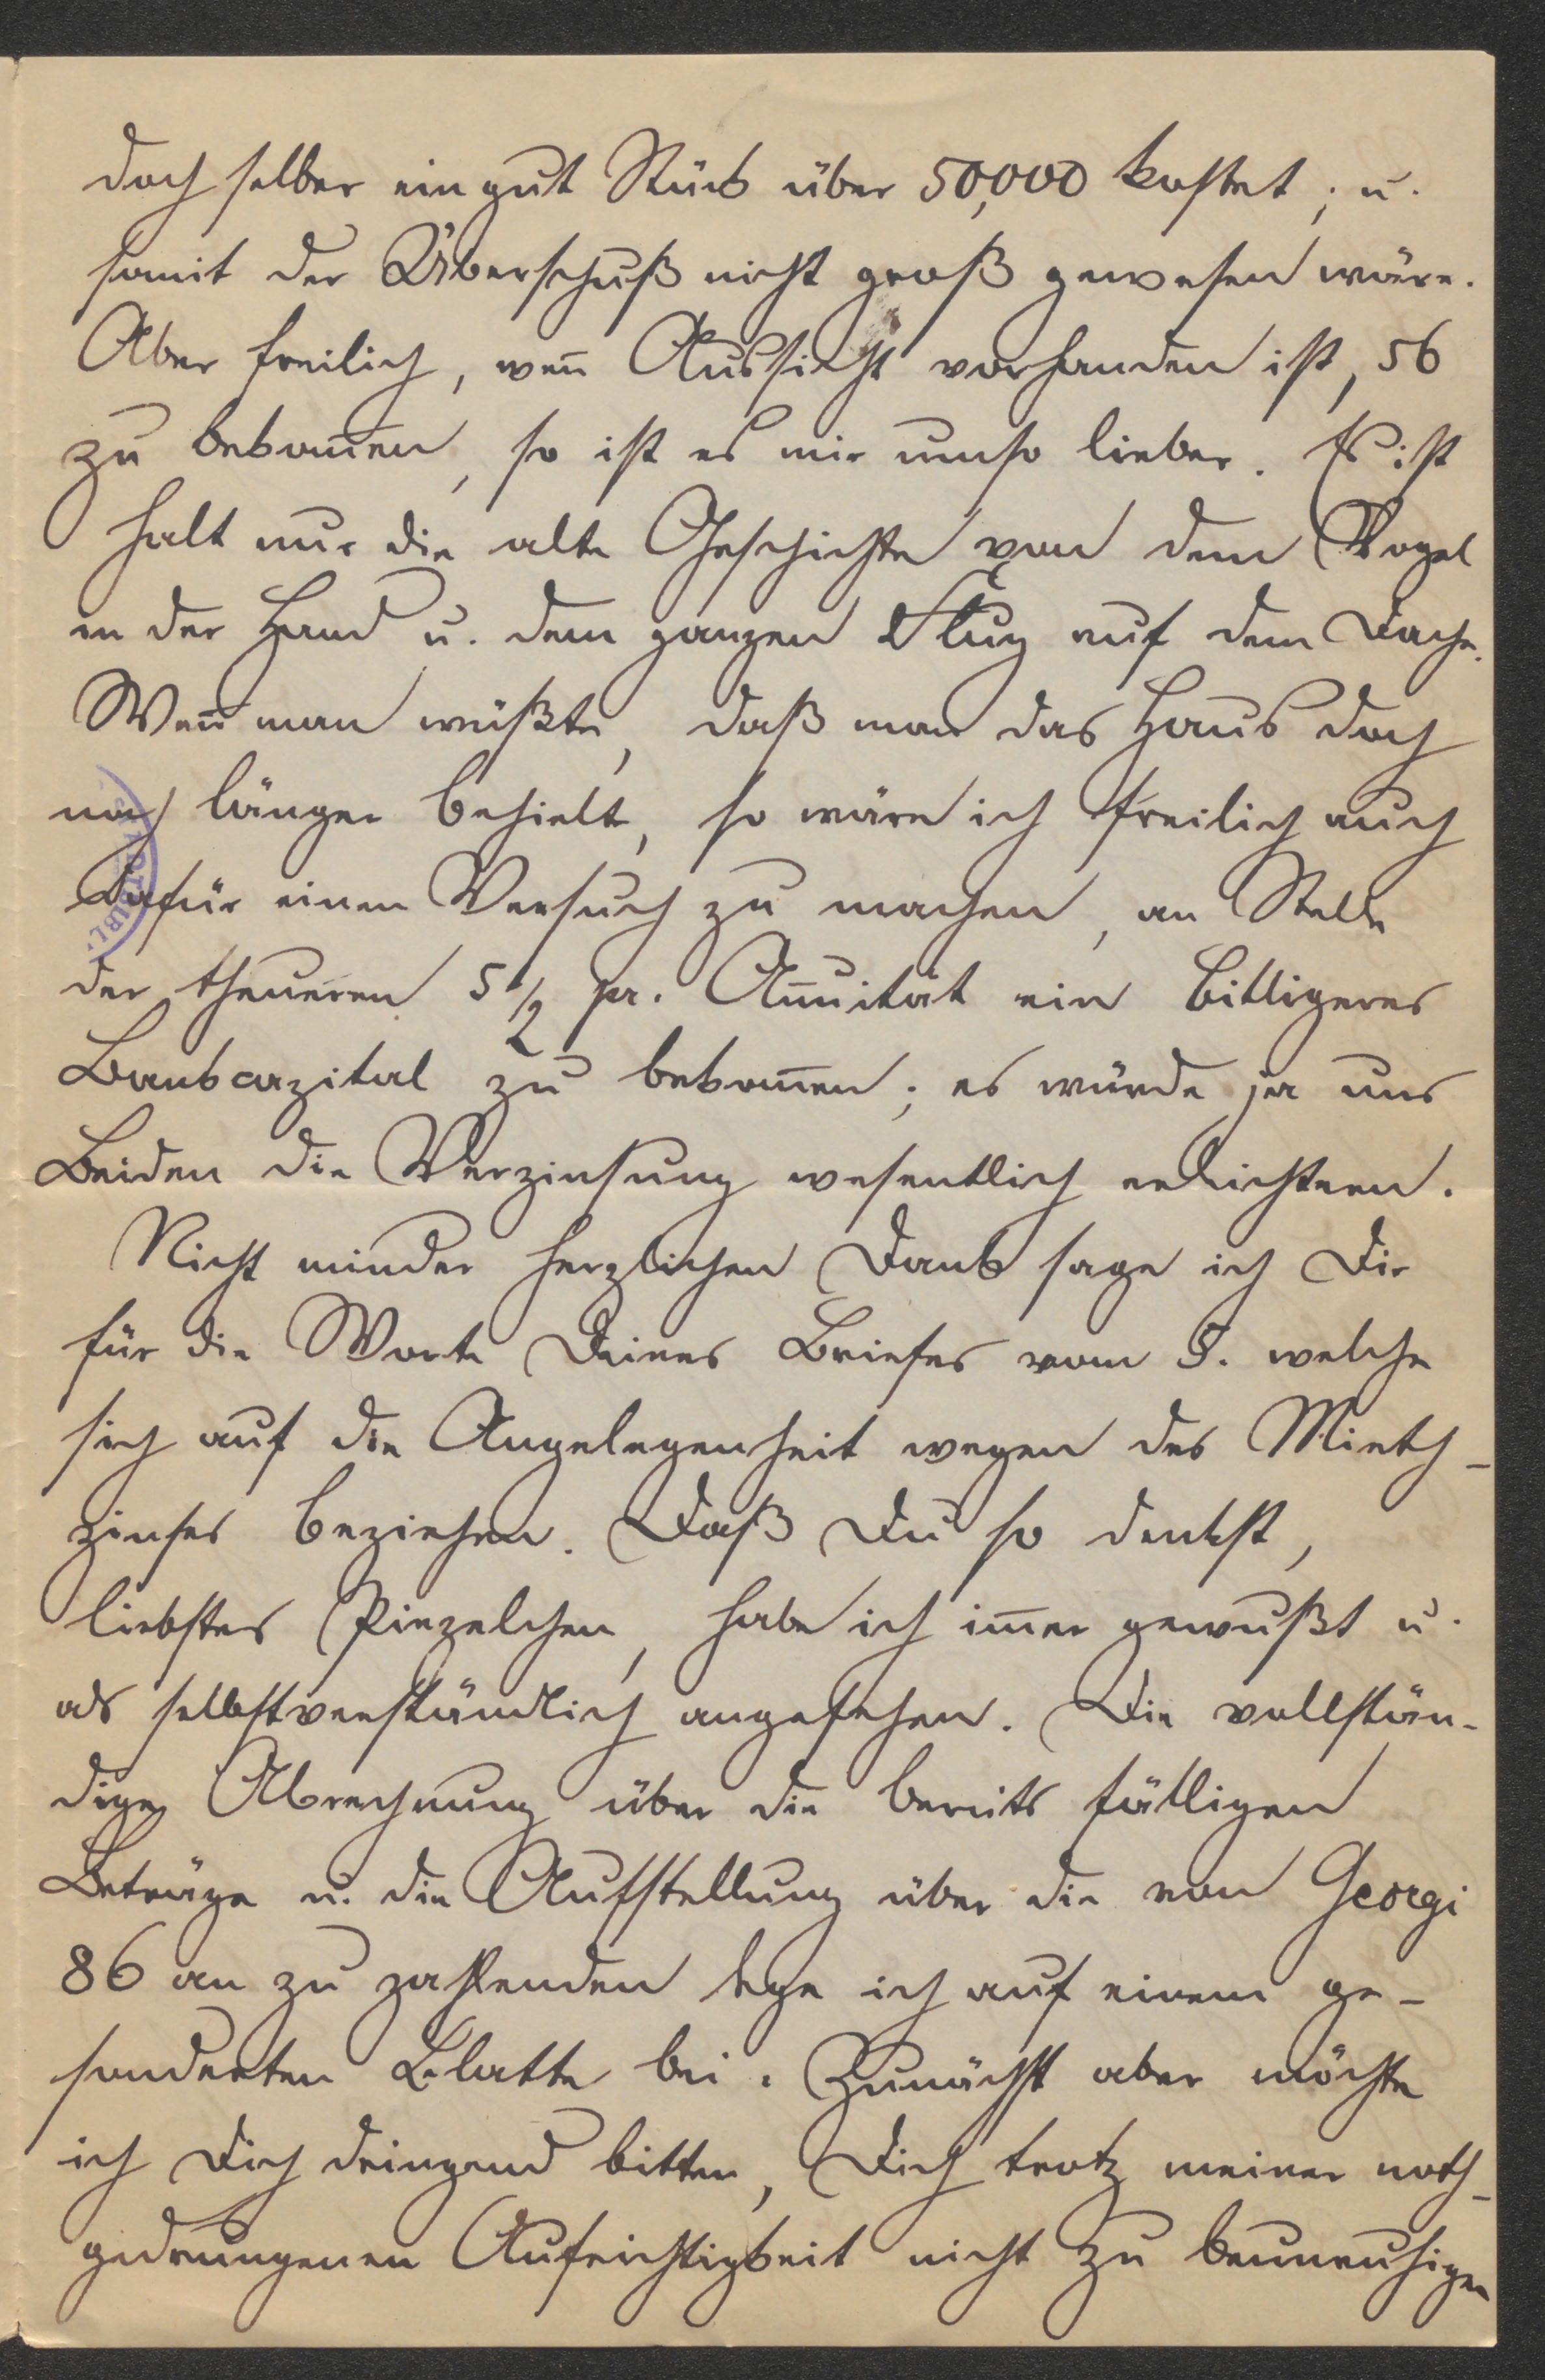 doch selber ein gut Stück über 50,000 kostet; u.
somit der Überschuß nicht groß gewesen wäre.
Aber freilich, weñ Aussicht vorhanden ist, 56
zu bekom̃en, so ist es mir umso lieber. Es ist
halt nur die alte Geschichte von dem Vogel
in der Hand u. dem ganzen Flug auf dem Dache.
Weñ man wüßte, daß man das Haus doch
noch länger behielte, so wäre ich freilich auch
dafür einen Versuch zu machen, an Stelle
der theueren 5 1/2 pr. Añuität ein billigeres
Bankcapital zu bekom̃en; es würde ja uns
Beiden die Verzinsung wesentlich erleichtern.
Nicht minder herzlichen Dank sage ich Dir
für die Worte Deines Briefes vom 8. welche
sich auf die Angelegenheit wegen des Mieth-
zinses beziehen. Daß Du so denkst,
liebstes Pinzelchen, habe ich im̃er gewußt u.
als selbstverständlich angesehen. Die vollstän-
dige Abrechnung über die bereits fälligen
Beträge u. die Aufstellung über die von Georgi
86 an zu zahlenden lege ich auf einem ge-
sonderten Blatte bei. Zunächst aber möchte
ich Dich dringend bitten, Dich trotz meiner noth-
gedrungenen Aufrichtigkeit nicht zu beunruhigen